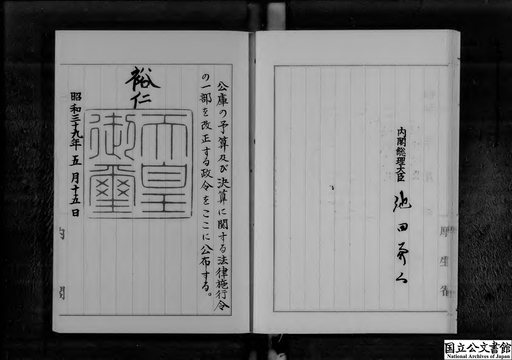 内閣総理大臣 池田勇人
公庫の予算及び決算に関する法律施行令
の一部を改正する政令をここに公布する。
裕仁
天皇御璽
昭和三十九年五月十五日
国立公文書館
National Archives of Japan